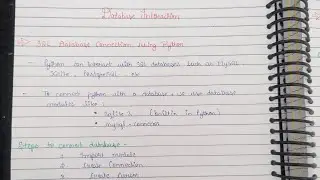 Database Interaction
SQL Database Connection Using Python
- Python can interact with SQL databases such as MySQL,
SQLite, PostgreSQL, etc
- To connect python with a database, we use database
modules like :
• sqlite3 (built in in Python)
• mysql-connector
Steps to connect database -
Import module
Create Connection
Create Cursor